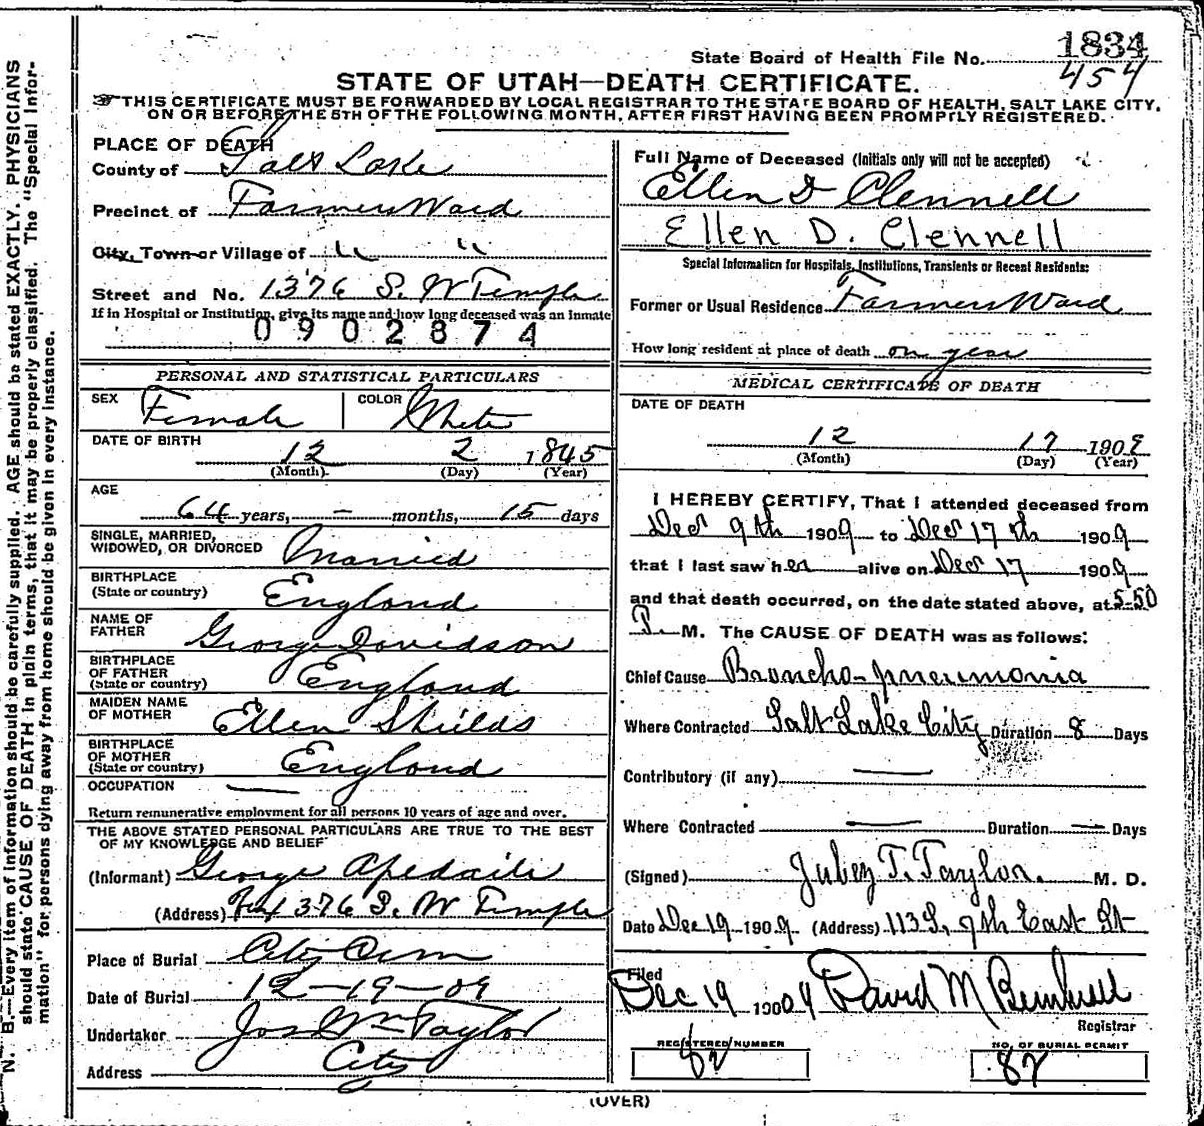 1834
State Board of Health File No. 454
STATE OF UTAH—DEATH CERTIFICATE.
THIS CERTIFICATE MUST BE FORWARDED BY LOCAL REGISTRAR TO THE STATE BOARD OF HEALTH, SALT LAKE CITY,
ON OR BEFORE THE 5TH OF THE FOLLOWING MONTH, AFTER FIRST HAVING BEEN PROMPTLY REGISTERED.
N. B.—Every item of information should be carefully supplied. AGE should be stated EXACTLY. PHYSICIANS
should state CAUSE OF DEATH in plain terms, that it may be properly classified. The "Special Infor-
mation" for persons dying away from home should be given in every instance.
PLACE OF DEATH
County of Salt Lake
Precinct of Farmers Ward
City, Town or Village of " "
Street and No. 1376 S. W Temple
If in Hospital or Institution, give its name and how long deceased was an inmate
0902874
PERSONAL AND STATISTICAL PARTICULARS
SEX Female COLOR White
DATE OF BIRTH
12 2 1845
(Month) (Day) (Year)
AGE
64 years, – months, 15 days
SINGLE, MARRIED,
WIDOWED, OR DIVORCED Married
BIRTHPLACE
(State or country) England
NAME OF
FATHER George Davidson
BIRTHPLACE
OF FATHER
(State or country) England
MAIDEN NAME
OF MOTHER Ellen Shields
BIRTHPLACE
OF MOTHER
(State or country) England
OCCUPATION —
Return remunerative employment for all persons 10 years of age and over.
THE ABOVE STATED PERSONAL PARTICULARS ARE TRUE TO THE BEST
OF MY KNOWLEDGE AND BELIEF
(Informant) George Apedaile
(Address) 1376 S. W Temple
Place of Burial City Cem
Date of Burial 12-19-09
Undertaker Jos Wm Taylor
Address City
Full Name of Deceased (Initials only will not be accepted)
Ellen D Clennell
Ellen D. Clennell
Special Information for Hospitals, Institutions, Transients or Recent Residents:
Former or Usual Residence Farmers Ward
How long resident at place of death on year
MEDICAL CERTIFICATE OF DEATH
DATE OF DEATH
12 17 1909
(Month) (Day) (Year)
I HEREBY CERTIFY, That I attended deceased from
Dec 9th 1909 to Dec 17th 1909
that I last saw her alive on Dec 17 1909
and that death occurred, on the date stated above, at 5-50
P. M. The CAUSE OF DEATH was as follows:
Chief Cause Broncho-pneumonia
Where Contracted Salt Lake City Duration 8 Days
Contributory (if any) —
Where Contracted — Duration — Days
(Signed) T. Taylor. M. D.
Date Dec 19 1909 (Address) 113 S, 7th East St
Filed
Dec 19 1909 David M
Registrar
REGISTERED NUMBER
82
NO. OF BURIAL PERMIT
82
(OVER)